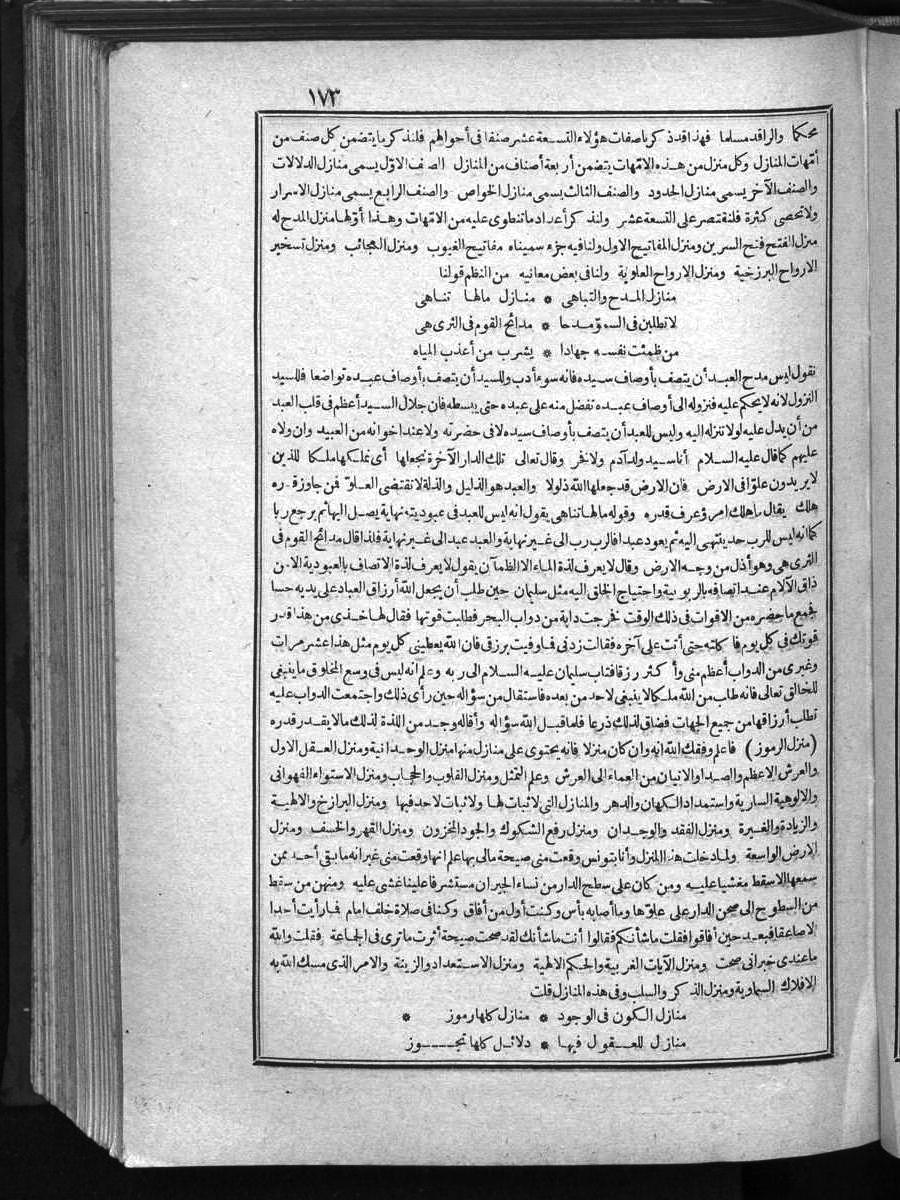 ١٧٣
محكما والراقد مساما فهذا قد ذكرنا صفات هؤلاء التسعة عشر صنفا في أحوالهم فلنذكر ما يتضمن كل صنف من
أمّهات المنازل وكل منزل من هذه الامّهات يتضمن أربعة أصناف من المنازل الصنف الاوّل يسمى منازل الدلالات
والصنف الآخر يسمى منازل الحدود والصنف الثالث يسمى منازل الخواص والصنف الرابع يسمى منازل الاسرار
ولا تحصى كثرة فلنقتصر على التسعة عشر ولنذكر أعداد ما تنطوى عليه من الامّهات وهذا أوّلها منزل المدح له
منزل الفتح فتح السرين ومنزل المفاتيح الاول ولنا فيه جزء سميناه مفاتيح الغيوب ومنزل العجائب ومنزل تسخير
الارواح البرزخية ومنزل الارواح العلوية ولنا في بعض معانيه من النظم قولنا
منازل المدح والتباهى * منازل مالها تناهى
لا تطلبن في السموّ مدحا * مدائح القوم في الثرى هى
من ظمئت نفسه جهادا * يشرب من أعذب المياه
نقول ليس مدح العبد أن يتصف بأوصاف سيده فانه سوء أدب وللسيد أن يتصف بأوصاف عبده تواضعا فللسيد
النزول لانه لا يحكم عليه فنزوله الى أوصاف عبده تفضل منه على عبده حتى يبسطه فان جلال السيد أعظم في قلب العبد
من أن يدل عليه لولا تنزله اليه وليس للعبد أن يتصف بأوصاف سيده لا في حضرته ولا عند اخوانه من العبيد وان ولاه
عليهم كما قال عليه السلام أنا سيد ولد آدم ولا فخر وقال تعالى تلك الدار الآخرة نجعلها أى نملكها ملكا للذين
لا يريدون علوّا في الارض فان الارض قد جعلها الله ذلولا والعبد هو الذليل والذلة لا تقتضى العلوّ فمن جاوز قدره
هلك يقال ما هلك امرؤ عرف قدره وقوله مالها تناهى يقول انه ليس للعبد في عبوديته نهاية يصل اليها ثم يرجع ربا
كما انه ليس للرب حد ينتهى اليه ثم يعود عبدا فالرب رب الى غير نهاية والعبد عبد الى غير نهاية فلذا قال مدائح القوم في
الثرى هى وهو أذل من وجه الارض وقال لا يعرف لذة الماء الا الظمآن يقول لا يعرف لذة الاتصاف بالعبودية الا من
ذاق الآلام عند اتصافه بالربوبية واحتياج الخلق اليه مثل سليمان حين طلب أن يجعل الله أرزاق العباد على يديه حسا
فجمع ما حضره من الاقوات في ذلك الوقت فخرجت دابة من دواب البحر فطلبت قوتها فقال لها خذى من هذا قدر
قوتك في كل يوم فأكلته حتى أتت على آخره فقالت زدنى فما وفيت برزقى فان الله يعطينى كل يوم مثل هذا عشر مرات
وغيرى من الدواب أعظم منى وأكثر رزقا فتاب سليمان عليه السلام الى ربه وعلم أنه ليس في وسع المخلوق ما ينبغى
للخالق تعالى فانه طلب من الله ملكا لا ينبغى لاحد من بعده فاستقال من سؤاله حين رأى ذلك واجتمعت الدواب عليه
تطلب أرزاقها من جميع الجهات فضاق لذلك ذرعا فلما قبل الله سؤاله وأقاله وجد من اللذة لذلك ما لا يقدر قدره
(منزل الرموز) فاعلم وفقك الله انه وان كان منزلا فانه يحتوى على منازل منها منزل الوحدانية ومنزل العقل الاول
والعرش الاعظم والصدا والاتيان من العماء الى العرش وعلم التمثل ومنزل القلوب والحجاب ومنزل الاستواء الفهوانى
والالوهية السارية واستمداد الكهان والدهر والمنازل التى لا ثبات لها ولا ثبات لاحد فيها ومنزل البرازخ والالهية
والزيادة والغيرة ومنزل الفقد والوجدان ومنزل رفع الشكوك والجود المخزون ومنزل القهر والخسف ومنزل
الارض الواسعة ولما دخلت هذا المنزل وأنا بتونس وقعت منى صيحة مالى بها علم انها وقعت منى غير انه ما بقى أحد ممن
سمعها الا سقط مغشيا عليه ومن كان على سطح الدار من نساء الجيران مستشرفا علينا غشى عليه ومنهن من سقط
من السطوح الى صحن الدار على علوّها وما أصابه بأس وكنت أول من أفاق وكنا في صلاة خلف امام فما رأيت أحدا
الا صاعقا فبعد حين أفاقوا فقلت ما شأنكم فقالوا أنت ما شأنك لقد صحت صيحة أثرت ما ترى في الجماعة فقلت والله
ما عندى خبر انى صحت ومنزل الآيات الغريبة والحكم الالهية ومنزل الاستعداد والزينة والامر الذى مسك الله به
الافلاك السماوية ومنزل الذكر والسلب وفى هذه المنازل قلت
منازل الكون في الوجود * منازل كلها رموز *
منازل للعقول فيها * دلائل كلها تجوز